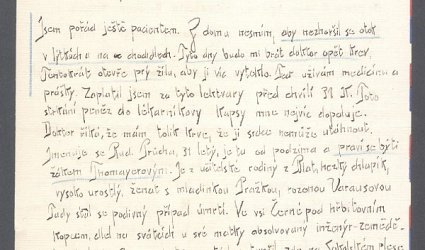 Jsem pořád ještě pacientem. Z domu nesmím, aby nezhoršil se otok
v lýtkách a na chodidlech. Tyto dny bude mi brát doktor opět krev.
Tentokrát otevře prý žílu, aby jí víc vyteklo. Teď užívám medicínu a
prášky. Zaplatil jsem za tyto lektvary před chvílí 31 K. Toto
strkání peněz do lékárníkovy kapsy mne nejvíc dopaluje.
Doktor říká, že mám tolik krve, že jí srdce nemůže utáhnout.
Jmenuje se Rud. Průcha, 31 letý, je tu od podzima a praví se býti
žákem Thomayerovým. Je z učitelské rodiny z Blat, hezký chlapík,
vysoko urostlý, ženatý s mladinkou Pražkou, rozenou Varausovou
Tady stal se podivný případ úmrtí. Ve vsi Černé pod hřbitovním
kopcem, dlel na svátcích u své matky absolvovaný inženýr-zeměděl-